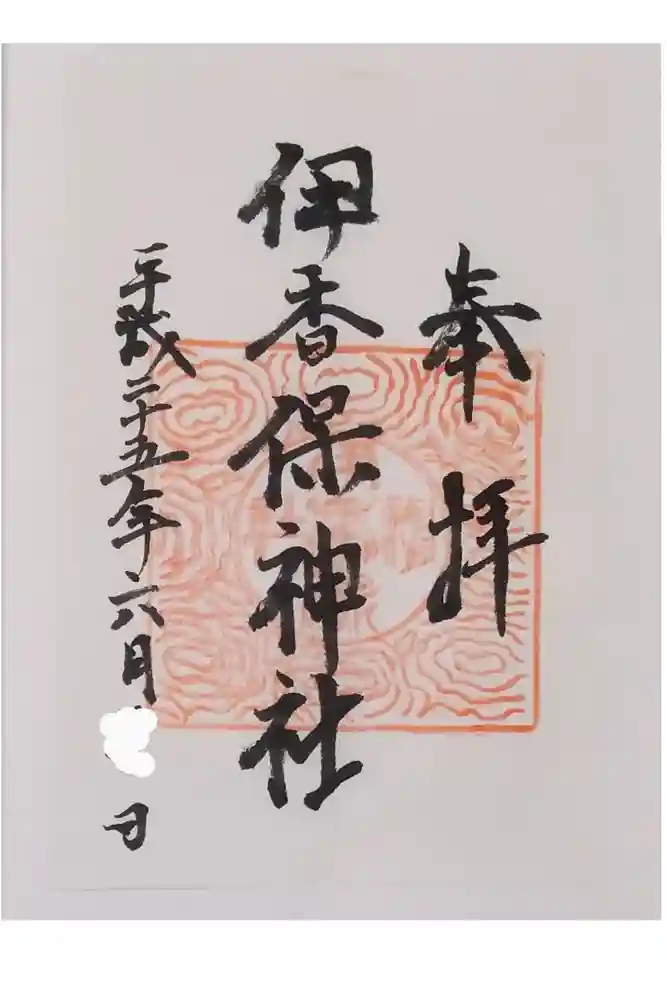 奉拝
伊香保神社
平成二十五年六月 日